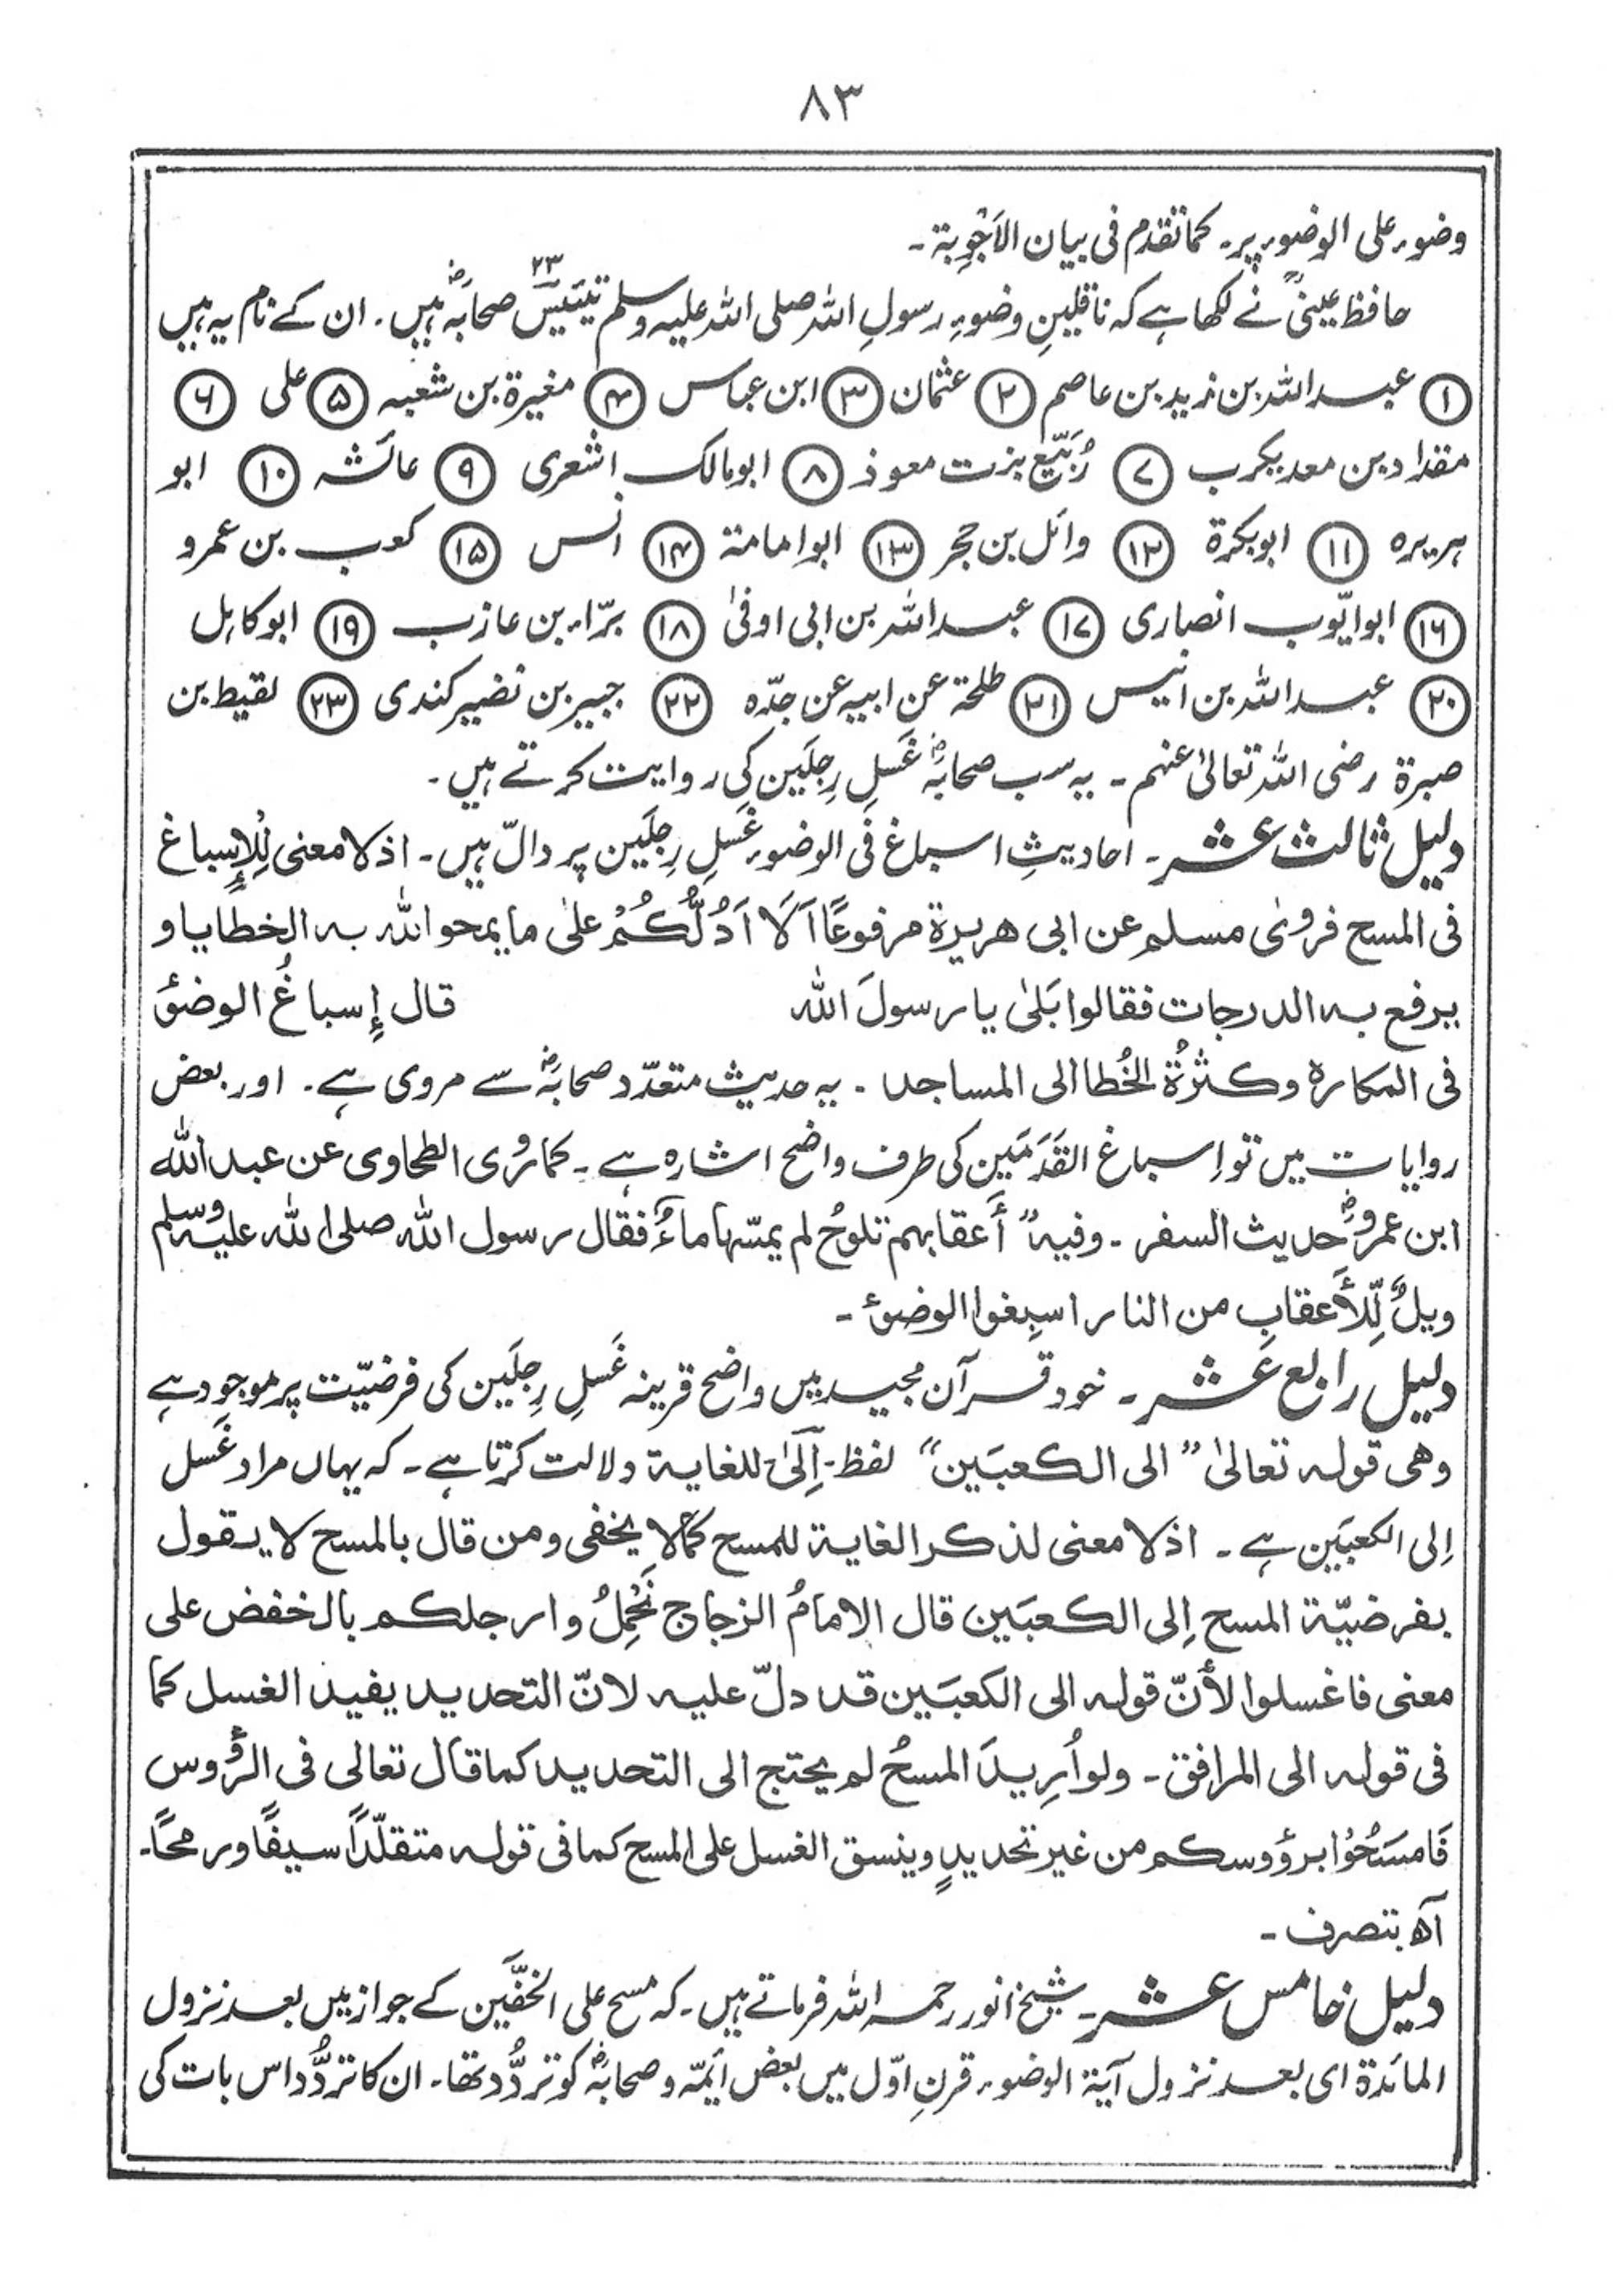 ۸۳
وضوء علی الوضوء پر۔ کما تقدم فی بیان الاَجْوِبۃ۔
حافظ عینیؒ نے لکھا ہے کہ ناقلینِ وضوءِ رسولِ اللہ صلی اللہ علیہ وسلم تیئیس ۲۳ صحابہؓ ہیں۔ ان کے نام یہ ہیں
① عبداللہ بن زید بن عاصم ② عثمان ③ ابن عباس ④ مغیرۃ بن شعبہ ⑤ علی ⑥
مقداد بن معدیکرب ⑦ رُبَیِّع بنت معوذ ⑧ ابو مالک اشعری ⑨ عائشہ ⑩ ابو
ہریرہ ⑪ ابوبکرۃ ⑫ وائل بن حجر ⑬ ابو امامۃ ⑭ انس ⑮ کعب بن عمرو
⑯ ابو ایّوب انصاری ⑰ عبداللہ بن ابی اوفیٰ ⑱ برّاء بن عازب ⑲ ابو کاہل
⑳ عبداللہ بن انیس ㉑ طلحۃ عن ابیہ عن جدّہ ㉒ جبیر بن نضیر کندی ㉓ لقیط بن
صبرۃ رضی اللہ تعالیٰ عنہم۔ یہ سب صحابہؓ غَسلِ رِجلَین کی روایت کرتے ہیں۔
دلیل ثالث عشر۔ احادیثِ اسباغ فی الوضوء غَسلِ رِجلَین پر دالّ ہیں۔ اذ لا معنی لِلإسباغ
فی المسح فروٰی مسلم عن ابی ھریرۃ مرفوعًا اَلَا اَدُلُّکُمْ علیٰ ما یمحو اللہ بہ الخطایا و
یرفع بہ الدرجات فقالوا بَلیٰ یا رسولَ اللہ قال إسباغُ الوضوءَ
فی المکارہ وکثرۃُ الخُطا الی المساجد۔ یہ حدیث متعدّد صحابہؓ سے مروی ہے۔ اور بعض
روایات میں تو اِسباغ القَدَمَین کی طرف واضح اشارہ ہے۔ کما رُوی الطحاوی عن عبداللہ
ابن عمروؓ حدیث السفر۔ وفیہ” أَعقابہم تلوحُ لم یمسّہا ماءٌ فقال رسول اللہ صلی اللہ علیہ وسلم
ویلٌ لِّلأَعقابِ من النار اسبِغوا الوضوء۔
دلیل رابع عَشر۔ خود قرآن مجید میں واضح قرینہ غَسلِ رِجلَین کی فرضیّت پر موجود ہے
وھی قولہ تعالیٰ ”الی الکعبَین“ لفظ۔ اِلَیٰ۔ للغایۃ دلالت کرتا ہے۔ کہ یہاں مراد غَسل
اِلی الکعبَین ہے۔ اذ لا معنی لذکر الغایۃ للمسح کما لا یخفی ومن قال بالمسح لا یقول
بفرضیّۃ المسح اِلی الکعبَین قال الامامُ الزجاج نَحْمِلُ وارجلکم بالخفض علی
معنی فاغسلوا لأنّ قولہ الی الکعبَین قد دلّ علیہ لانّ التحدید یفید الغسل کما
فی قولہ الی المرافق۔ ولو اُرِیدَ المسحُ لم یحتج الی التحدید کما قال تعالی فی الرؤوس
فَامسَحُوْا برؤوسکم من غیر تحدیدٍ وینسق الغسل علی المسح کما فی قولہ متقلّدًا سیفًا ورمحًا۔
آہ بتصرف۔
دلیل خامس عشر۔ شیخ انور رحمہ اللہ فرماتے ہیں۔ کہ مسح علی الخفَّین کے جواز میں بعد نزول
المائدۃ ای بعد نزول آیۃ الوضوء قرنِ اوّل میں بعض أئمّہ و صحابہؓ کو تردُّد تھا۔ ان کا تردُّد اس بات کی